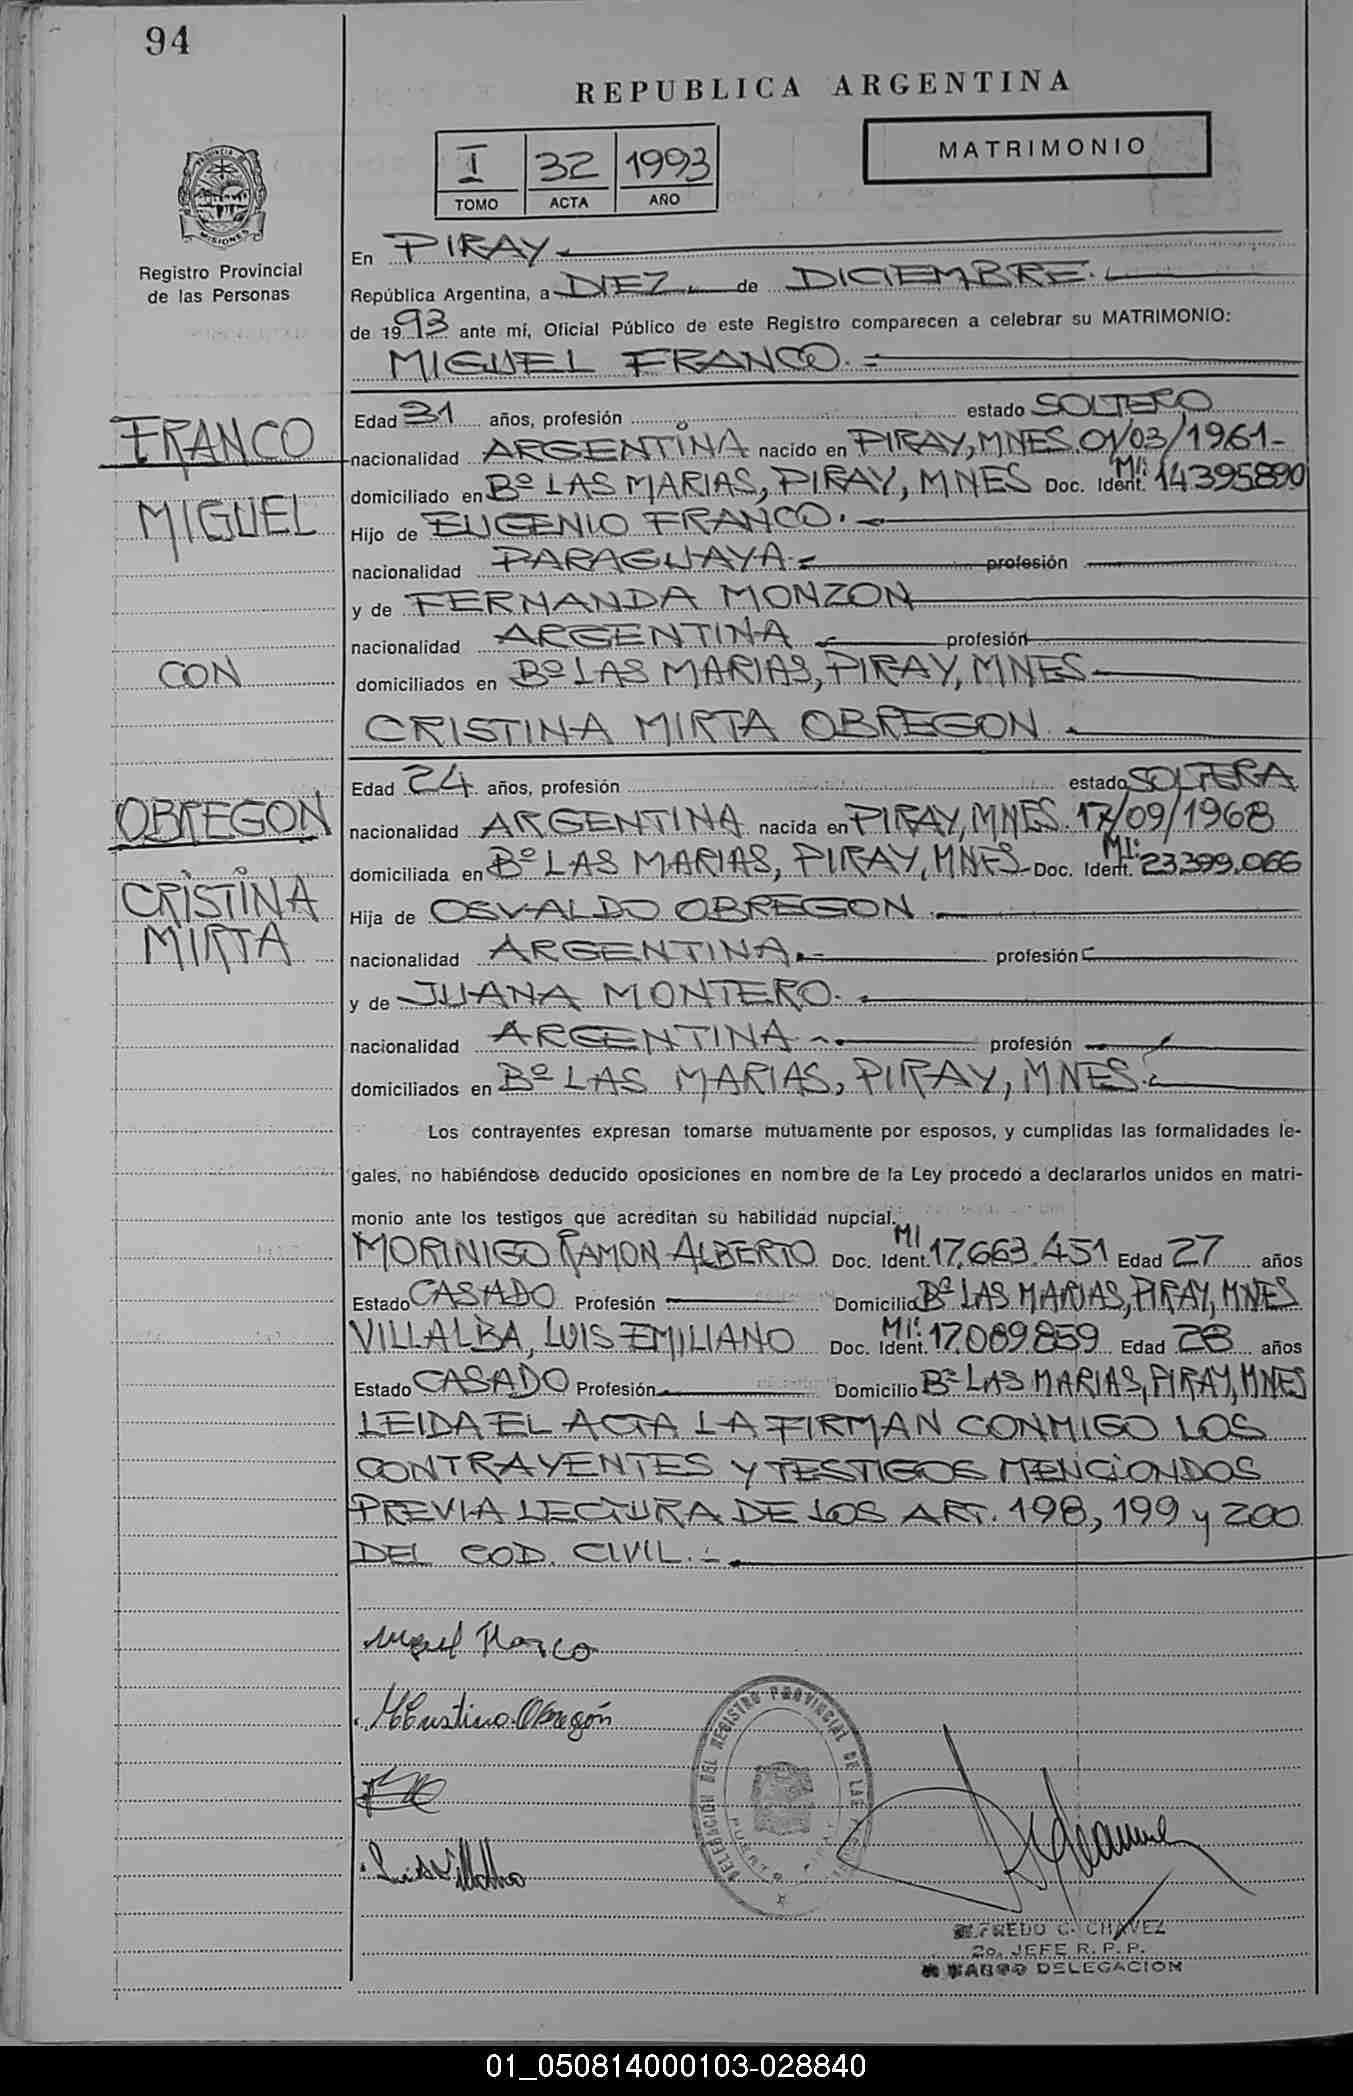 94
REPUBLICA ARGENTINA
I 32 1993
TOMO ACTA AÑO
MATRIMONIO
PROVINCIA DE
MISIONES
Registro Provincial
de las Personas
En PIRAY
República Argentina, a DIEZ de DICIEMBRE
de 1993 ante mí, Oficial Público de este Registro comparecen a celebrar su MATRIMONIO:
MIGUEL FRANCO
FRANCO
MIGUEL
CON
OBREGON
CRISTINA
MIRTA
Edad 31 años, profesión estado SOLTERO
nacionalidad ARGENTINA nacido en PIRAY, MNES. 01/03/1961-
domiciliado en Bº LAS MARIAS, PIRAY, MNES Doc. Ident. MI: 14395890
Hijo de EUGENIO FRANCO.
nacionalidad PARAGUAYA profesión
y de FERNANDA MONZON
nacionalidad ARGENTINA profesión
domiciliados en Bº LAS MARIAS, PIRAY, MNES
CRISTINA MIRTA OBREGON
Edad 24 años, profesión estado SOLTERA
nacionalidad ARGENTINA nacida en PIRAY, MNES. 17/09/1968
domiciliada en Bº LAS MARIAS, PIRAY, MNES Doc. Ident. MI: 23399.066
Hija de OSVALDO OBREGON
nacionalidad ARGENTINA profesión
y de JUANA MONTERO.
nacionalidad ARGENTINA profesión
domiciliados en Bº LAS MARIAS, PIRAY, MNES
Los contrayentes expresan tomarse mutuamente por esposos, y cumplidas las formalidades le-
gales, no habiéndose deducido oposiciones en nombre de la Ley procedo a declararlos unidos en matri-
monio ante los testigos que acreditan su habilidad nupcial.
MORINIGO RAMON ALBERTO Doc. Ident. MI 17.663.451 Edad 27 años
Estado CASADO Profesión Domicilio Bº LAS MARIAS, PIRAY, MNES
VILLALBA, LUIS EMILIANO Doc. Ident. MI: 17.089.859 Edad 28 años
Estado CASADO Profesión Domicilio Bº LAS MARIAS, PIRAY, MNES
LEIDA EL ACTA LA FIRMAN CONMIGO LOS
CONTRAYENTES Y TESTIGOS MENCIONDOS
PREVIA LECTURA DE LOS ART. 198, 199 y 200
DEL COD. CIVIL.
Miguel Franco
Cristina Obregón
Luis Villalba
DELEGACION DEL REGISTRO PROVINCIAL DE LAS
PUERTO PIRAY
ALFREDO C. CHAVEZ
2o. JEFE R. P. P.
A CARGO DELEGACION
01_050814000103-028840